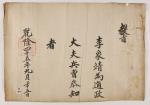 教旨
李象靖爲通政
大夫兵曹參知
者
乾隆四十五年九月十五日